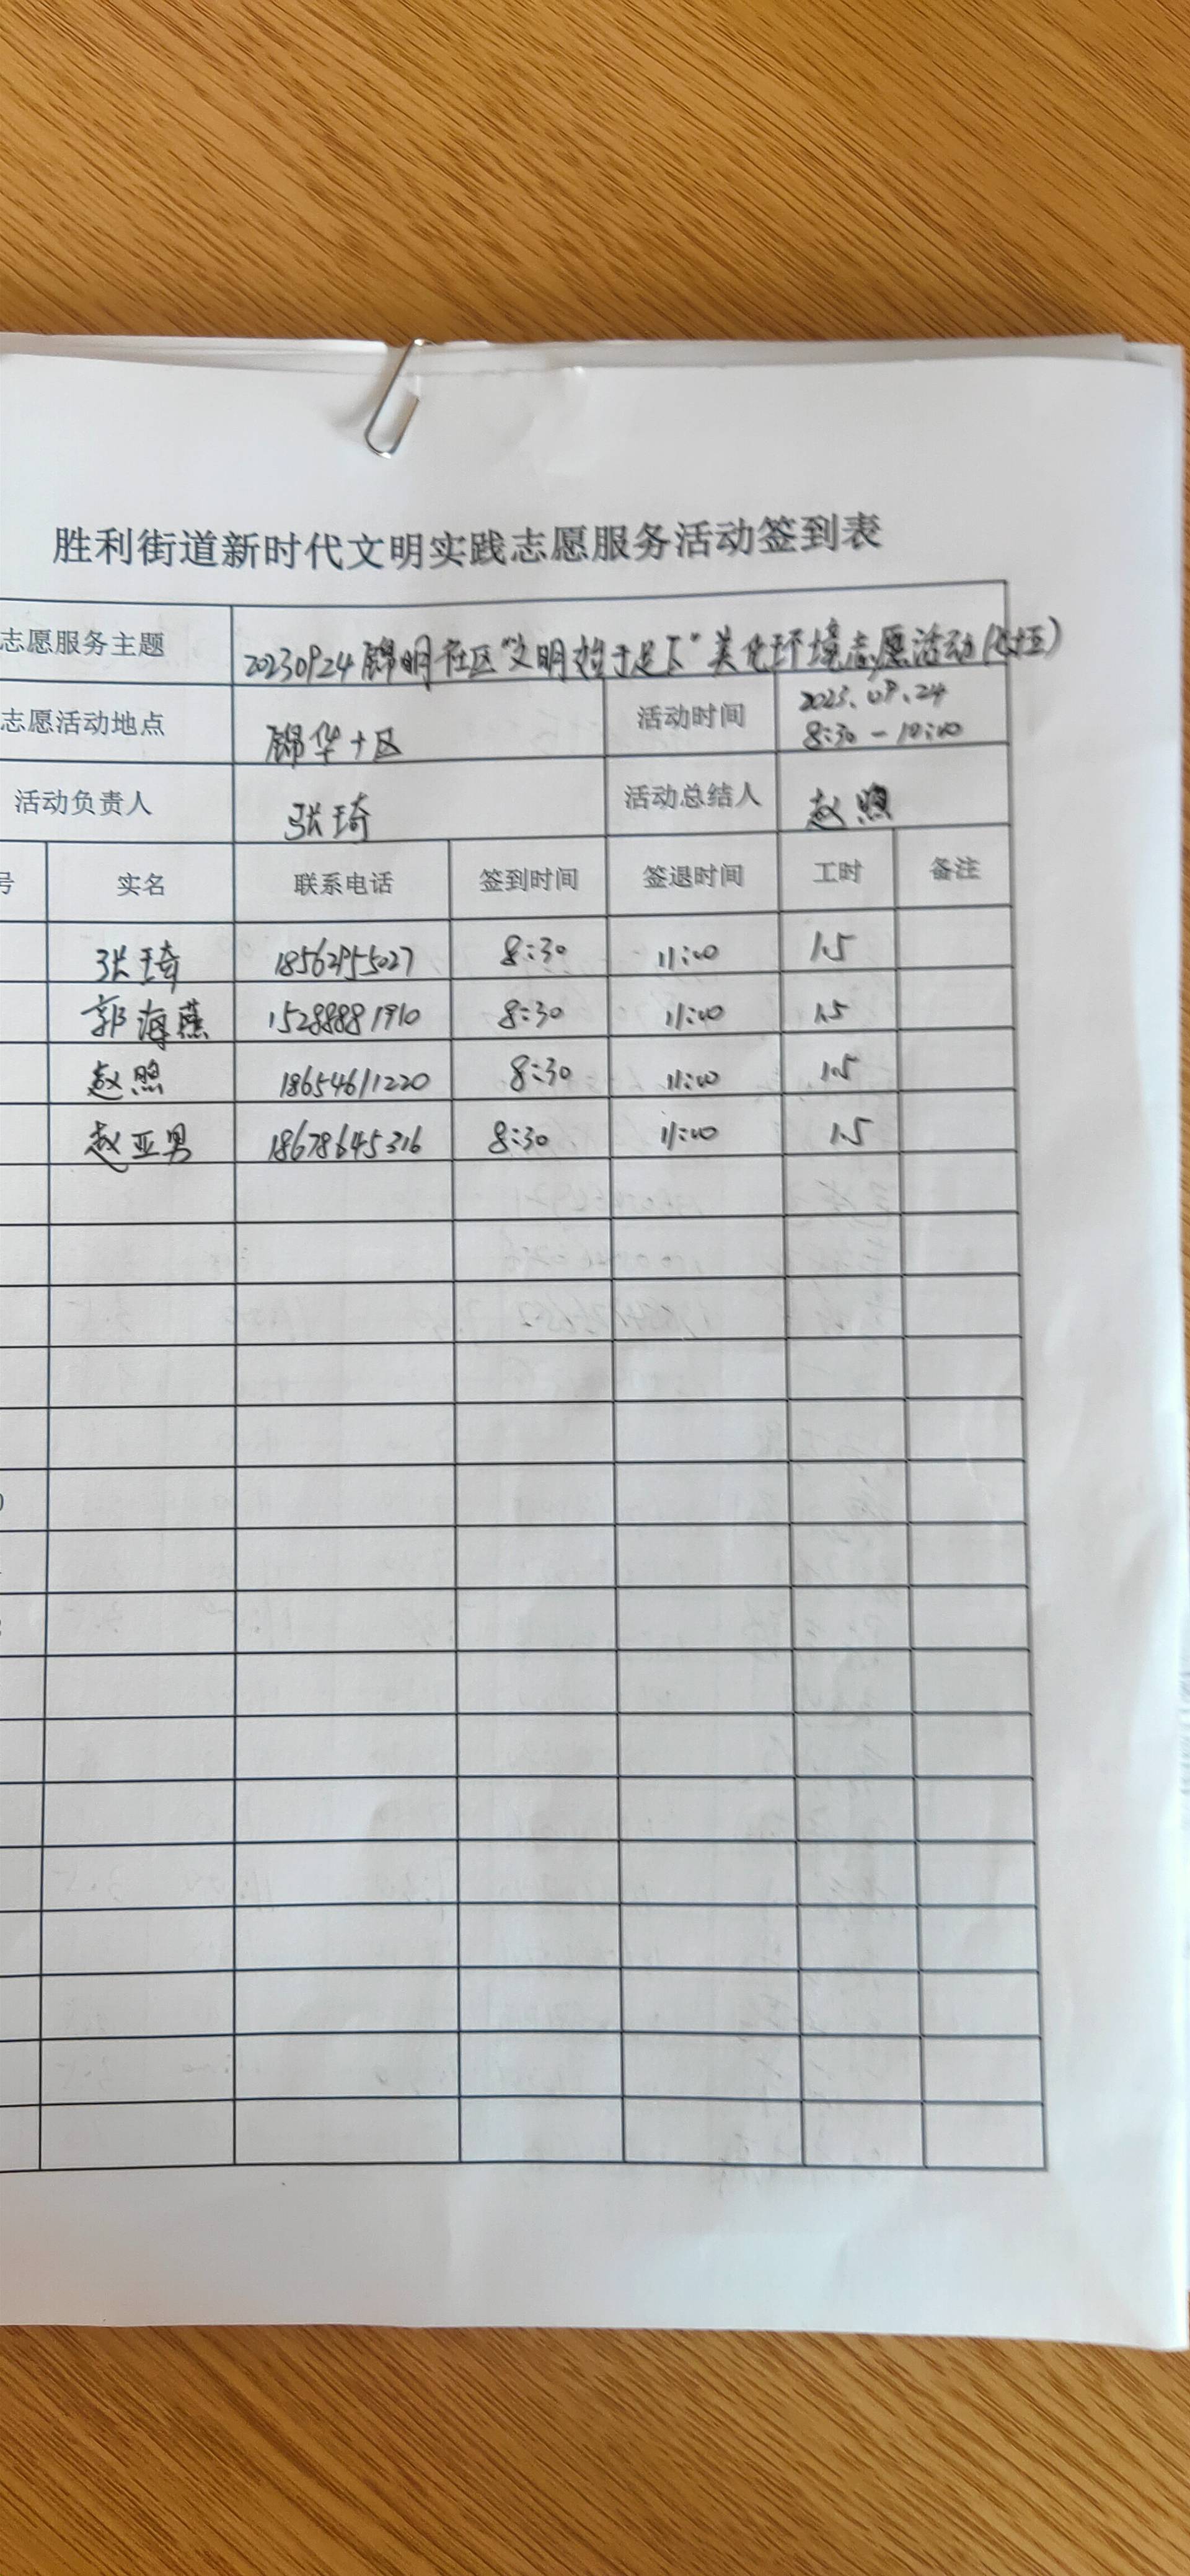 胜利街道新时代文明实践志愿服务活动签到表
志愿服务主题 20230924锦明社区"文明始于足下"美化环境志愿活动
志愿活动地点 锦华十区 活动时间 2023.09.24
8:30-10:00
活动负责人 张琦 活动总结人 赵照
号 实名 联系电话 签到时间 签退时间 工时 备注
张琦 18562955027 8:30 11:00 1.5
郭海燕 15288881910 8:30 11:00 1.5
赵照 18654611220 8:30 11:00 1.5
赵亚男 18678645316 8:30 11:00 1.5